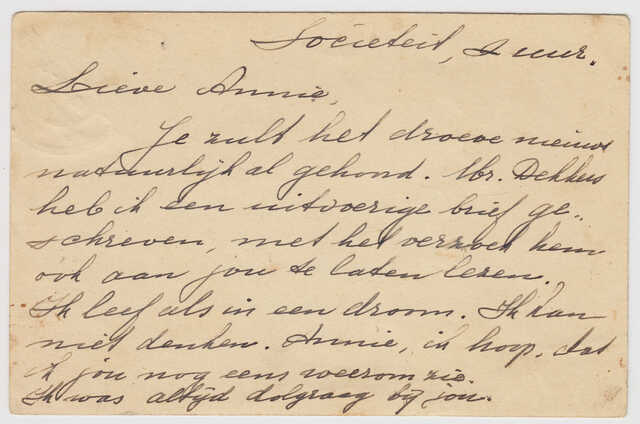 Societeit, 2 uur.
Lieve Annie,
Je zult het droeve nieuws
natuurlijk al gehoord. Mr. Dekkers
heb ik een uitvoerige brief ge„
schreven, met het verzoek hem
ook aan jou te laten lezen.
Ik leef als in een droom. Ik kan
niet denken. Annie, ik hoop, dat
ik jou nog eens weerom zie.
Ik was altijd dolgraag bij jou.